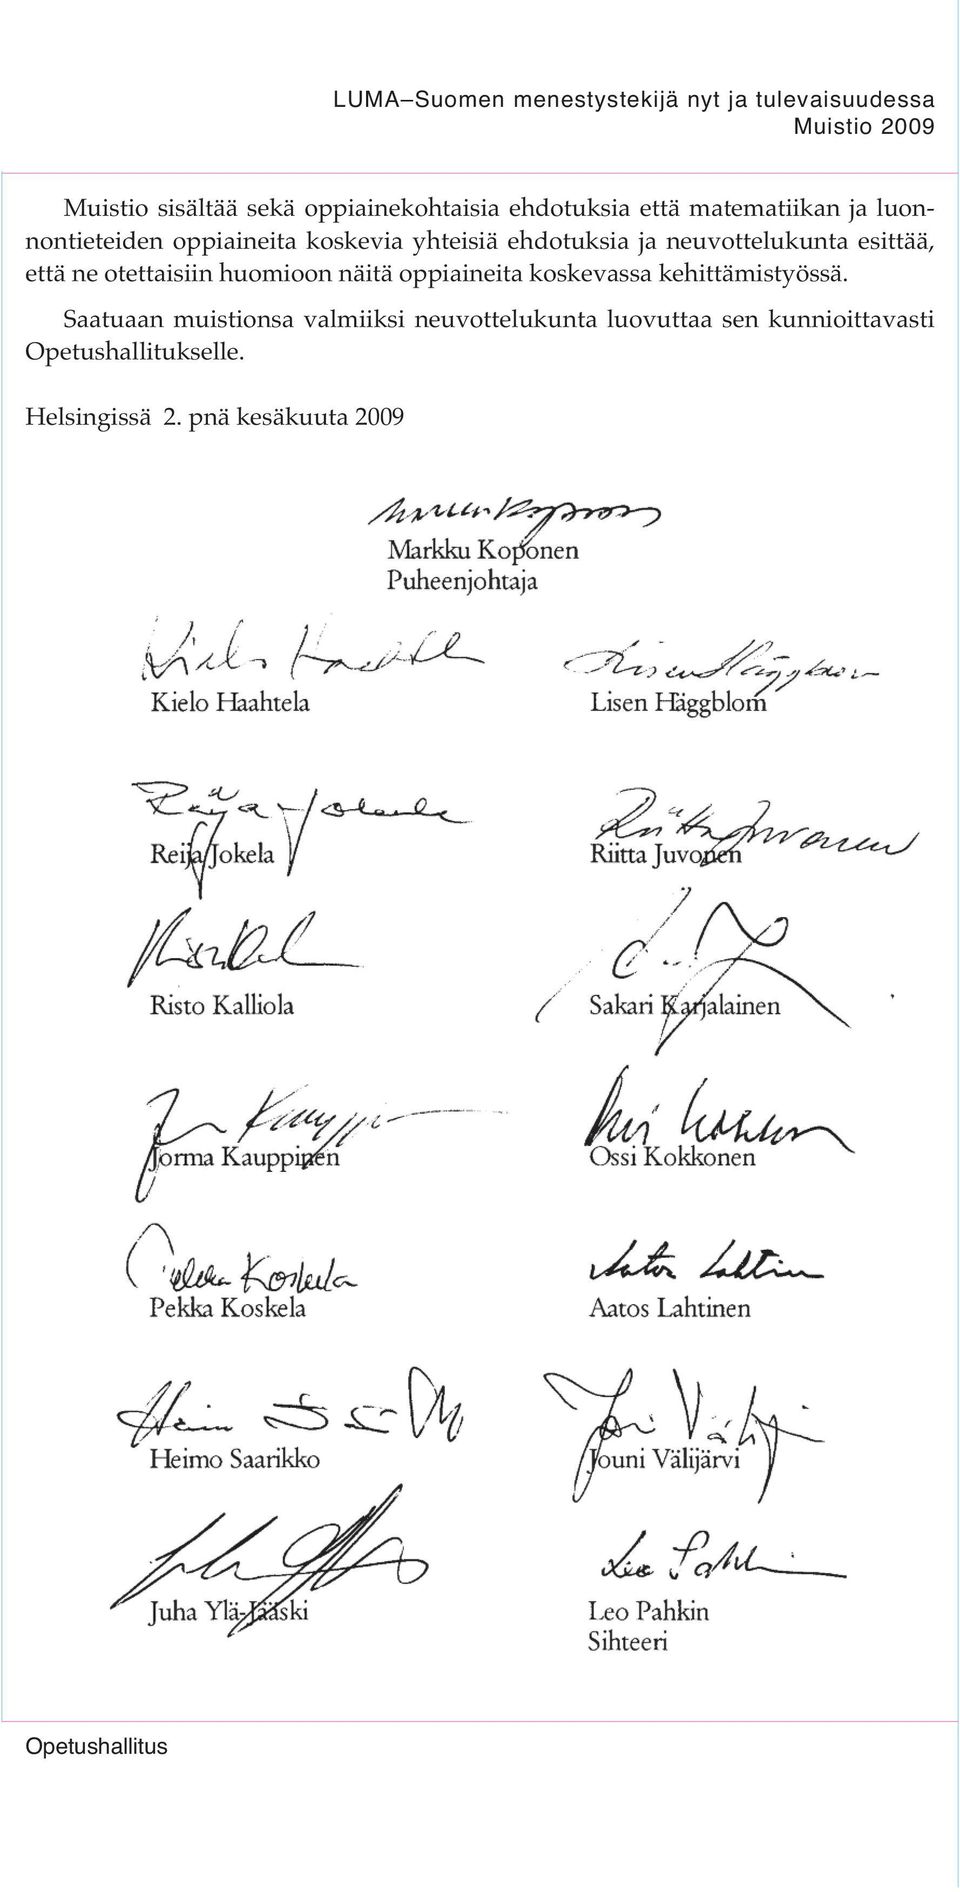 LUMA–Suomen menestystekijä nyt ja tulevaisuudessa
Muistio 2009
Muistio sisältää sekä oppiainekohtaisia ehdotuksia että matematiikan ja luon-
nontieteiden oppiaineita koskevia yhteisiä ehdotuksia ja neuvottelukunta esittää,
että ne otettaisiin huomioon näitä oppiaineita koskevassa kehittämistyössä.
Saatuaan muistionsa valmiiksi neuvottelukunta luovuttaa sen kunnioittavasti
Opetushallitukselle.
Helsingissä 2. pnä kesäkuuta 2009
Markku Koponen
Puheenjohtaja
Kielo Haahtela
Lisen Häggblom
Kielo Haahtela
Lisen Häggblom
Reija Jokela
Riitta Juvonen
Reija Jokela
Riitta Juvonen
Risto Kalliola
Sakari Karjalainen
Jorma Kauppinen
Ossi Kokkonen
Pekka Koskela
Aatos Lahtinen
Pekka Koskela
Aatos Lahtinen
Heimo Saarikko
Jouni Välijärvi
Leo Pahkin
Juha Ylä-Jääski
Leo Pahkin
Sihteeri
Opetushallitus